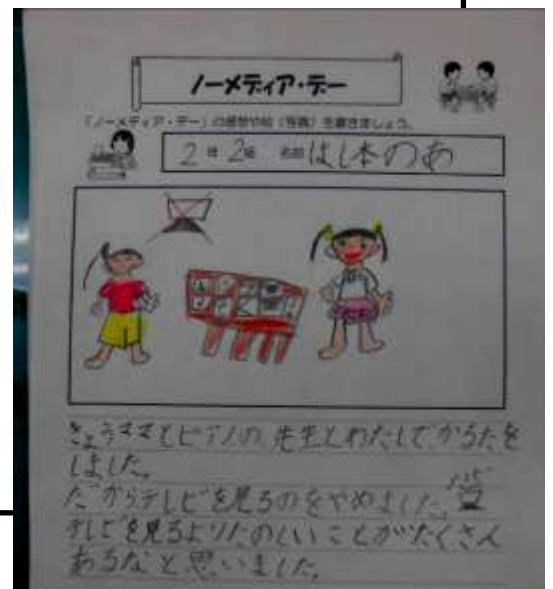 ノーメディア・デー
「ノーメディア・デー」の感想や絵（写真）を書きましょう。
2年 2組 名前 はし本のあ
きょうママとピアノの先生とわたしでかるたを
しました。
だからテレビを見るのをやめました。
テレビを見るよりたのしいことがたくさん
あるなと思いました。